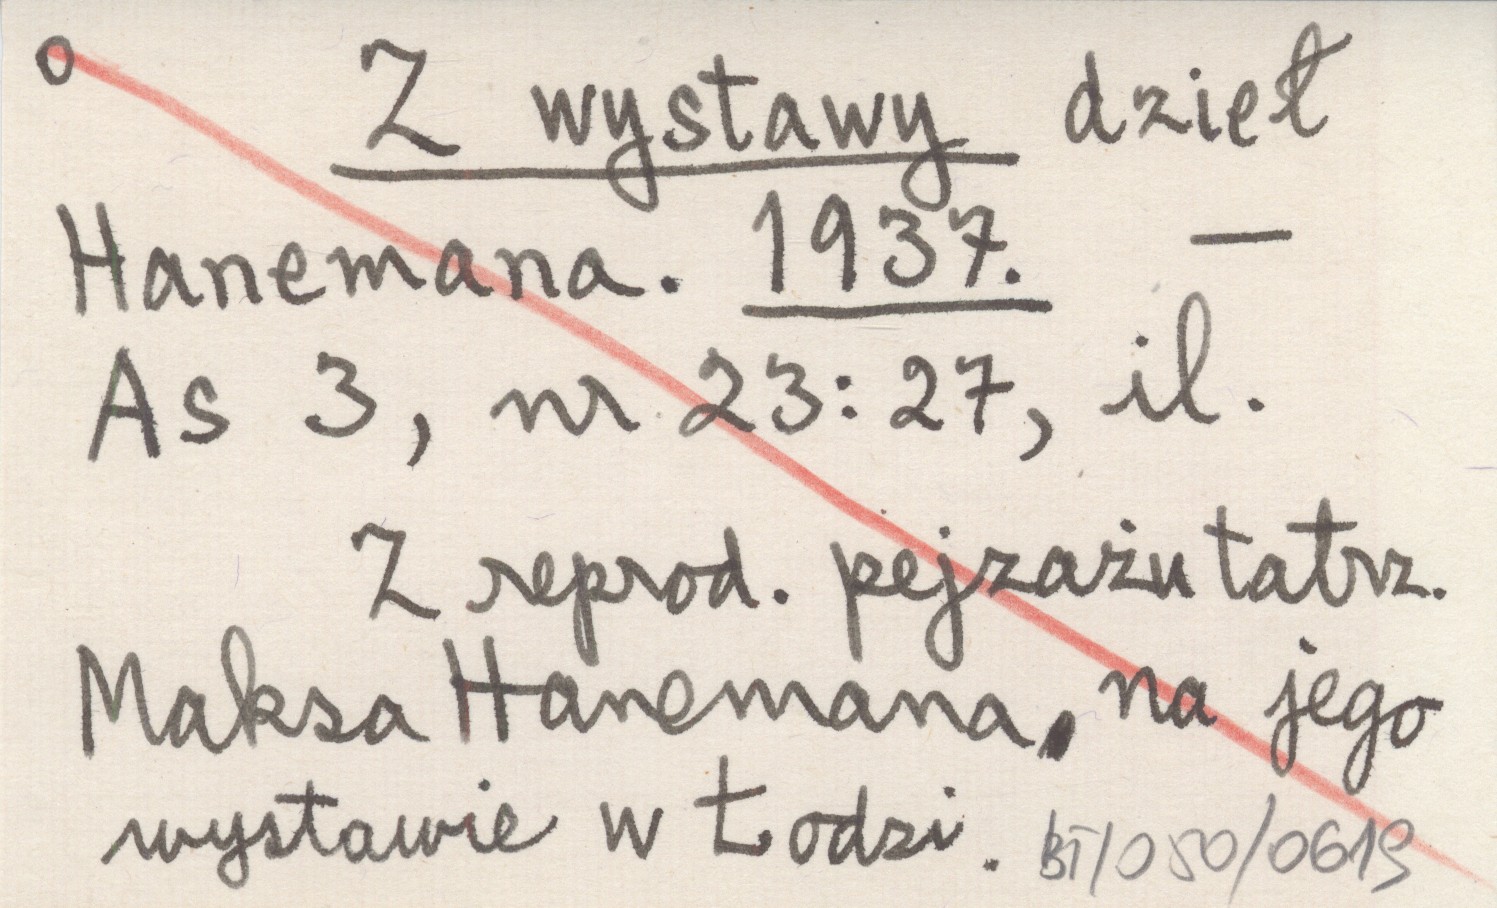 o Z wystawy dzieł
Hanemana. 1937. —
As 3, nr 23:27, il.
Z reprod. pejzażu tatrz.
Maksa Hanemana, na jego
wystawie w Łodzi.
BT/050/0619